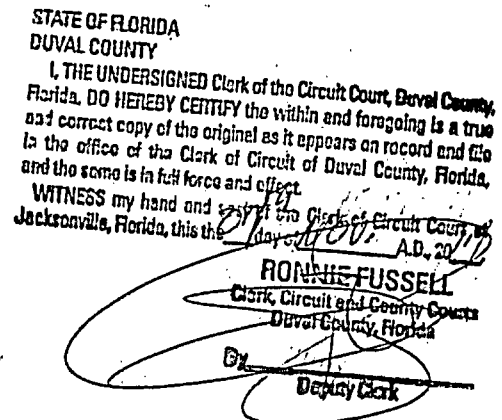 STATE OF FLORIDA
DUVAL COUNTY
I, THE UNDERSIGNED Clerk of the Circuit Court, Duval County,
Florida, DO HEREBY CERTIFY the within and foregoing is a true
and correct copy of the original as it appears on record and file
in the office of the Clerk of Circuit of Duval County, Florida,
and the same is in full force and effect.
WITNESS my hand and seal of the Clerk of Circuit Court at
Jacksonville, Florida, this the day of Nov. A.D., 20
RONNIE FUSSELL
Clerk, Circuit and County Courts
Duval County, Florida
By
Deputy Clerk